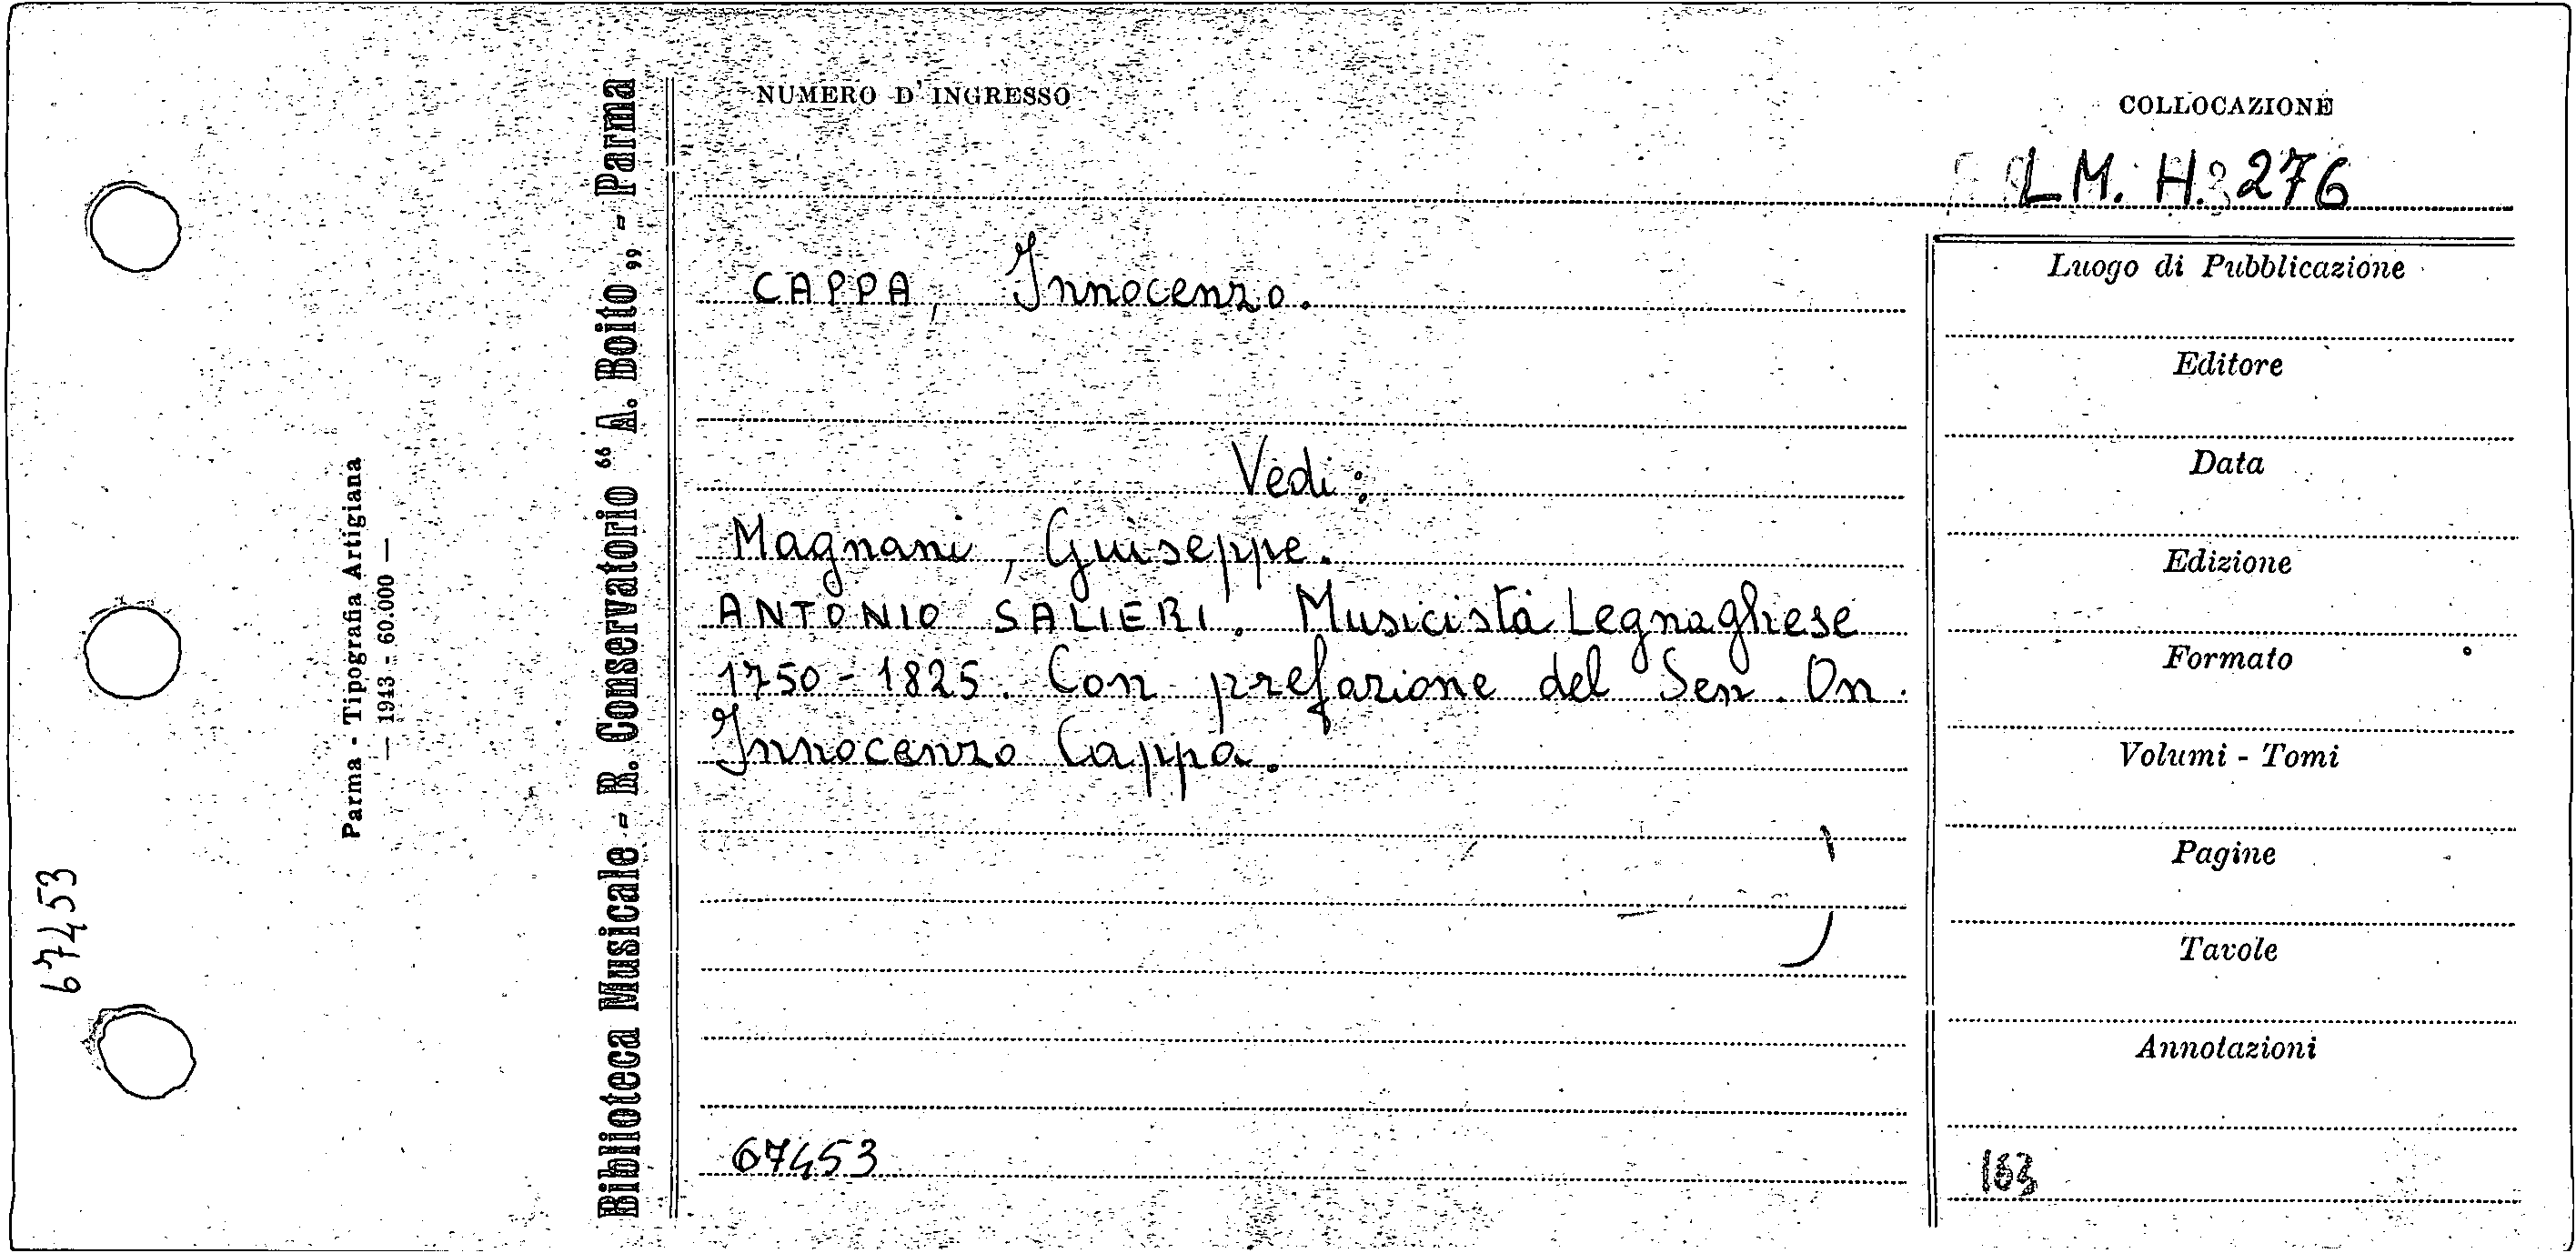 NUMERO D' INGRESSO
COLLOCAZIONE
LM. H. 276
CAPPA, Innocenzo.
Vedi:
Magnani, Giuseppe.
ANTONIO SALIERI. Musicista Legnaghese
1750-1825. Con prefazione del Sen. On.
Innocenzo Cappa.
67453
Luogo di Pubblicazione
Editore
Data
Edizione
Formato
Volumi - Tomi
Pagine
Tavole
Annotazioni
163
Biblioteca Musicale - R. Conservatorio "A. Boito" - Parma
Parma - Tipografia Artigiana
— 1943 - 60.000 —
67453